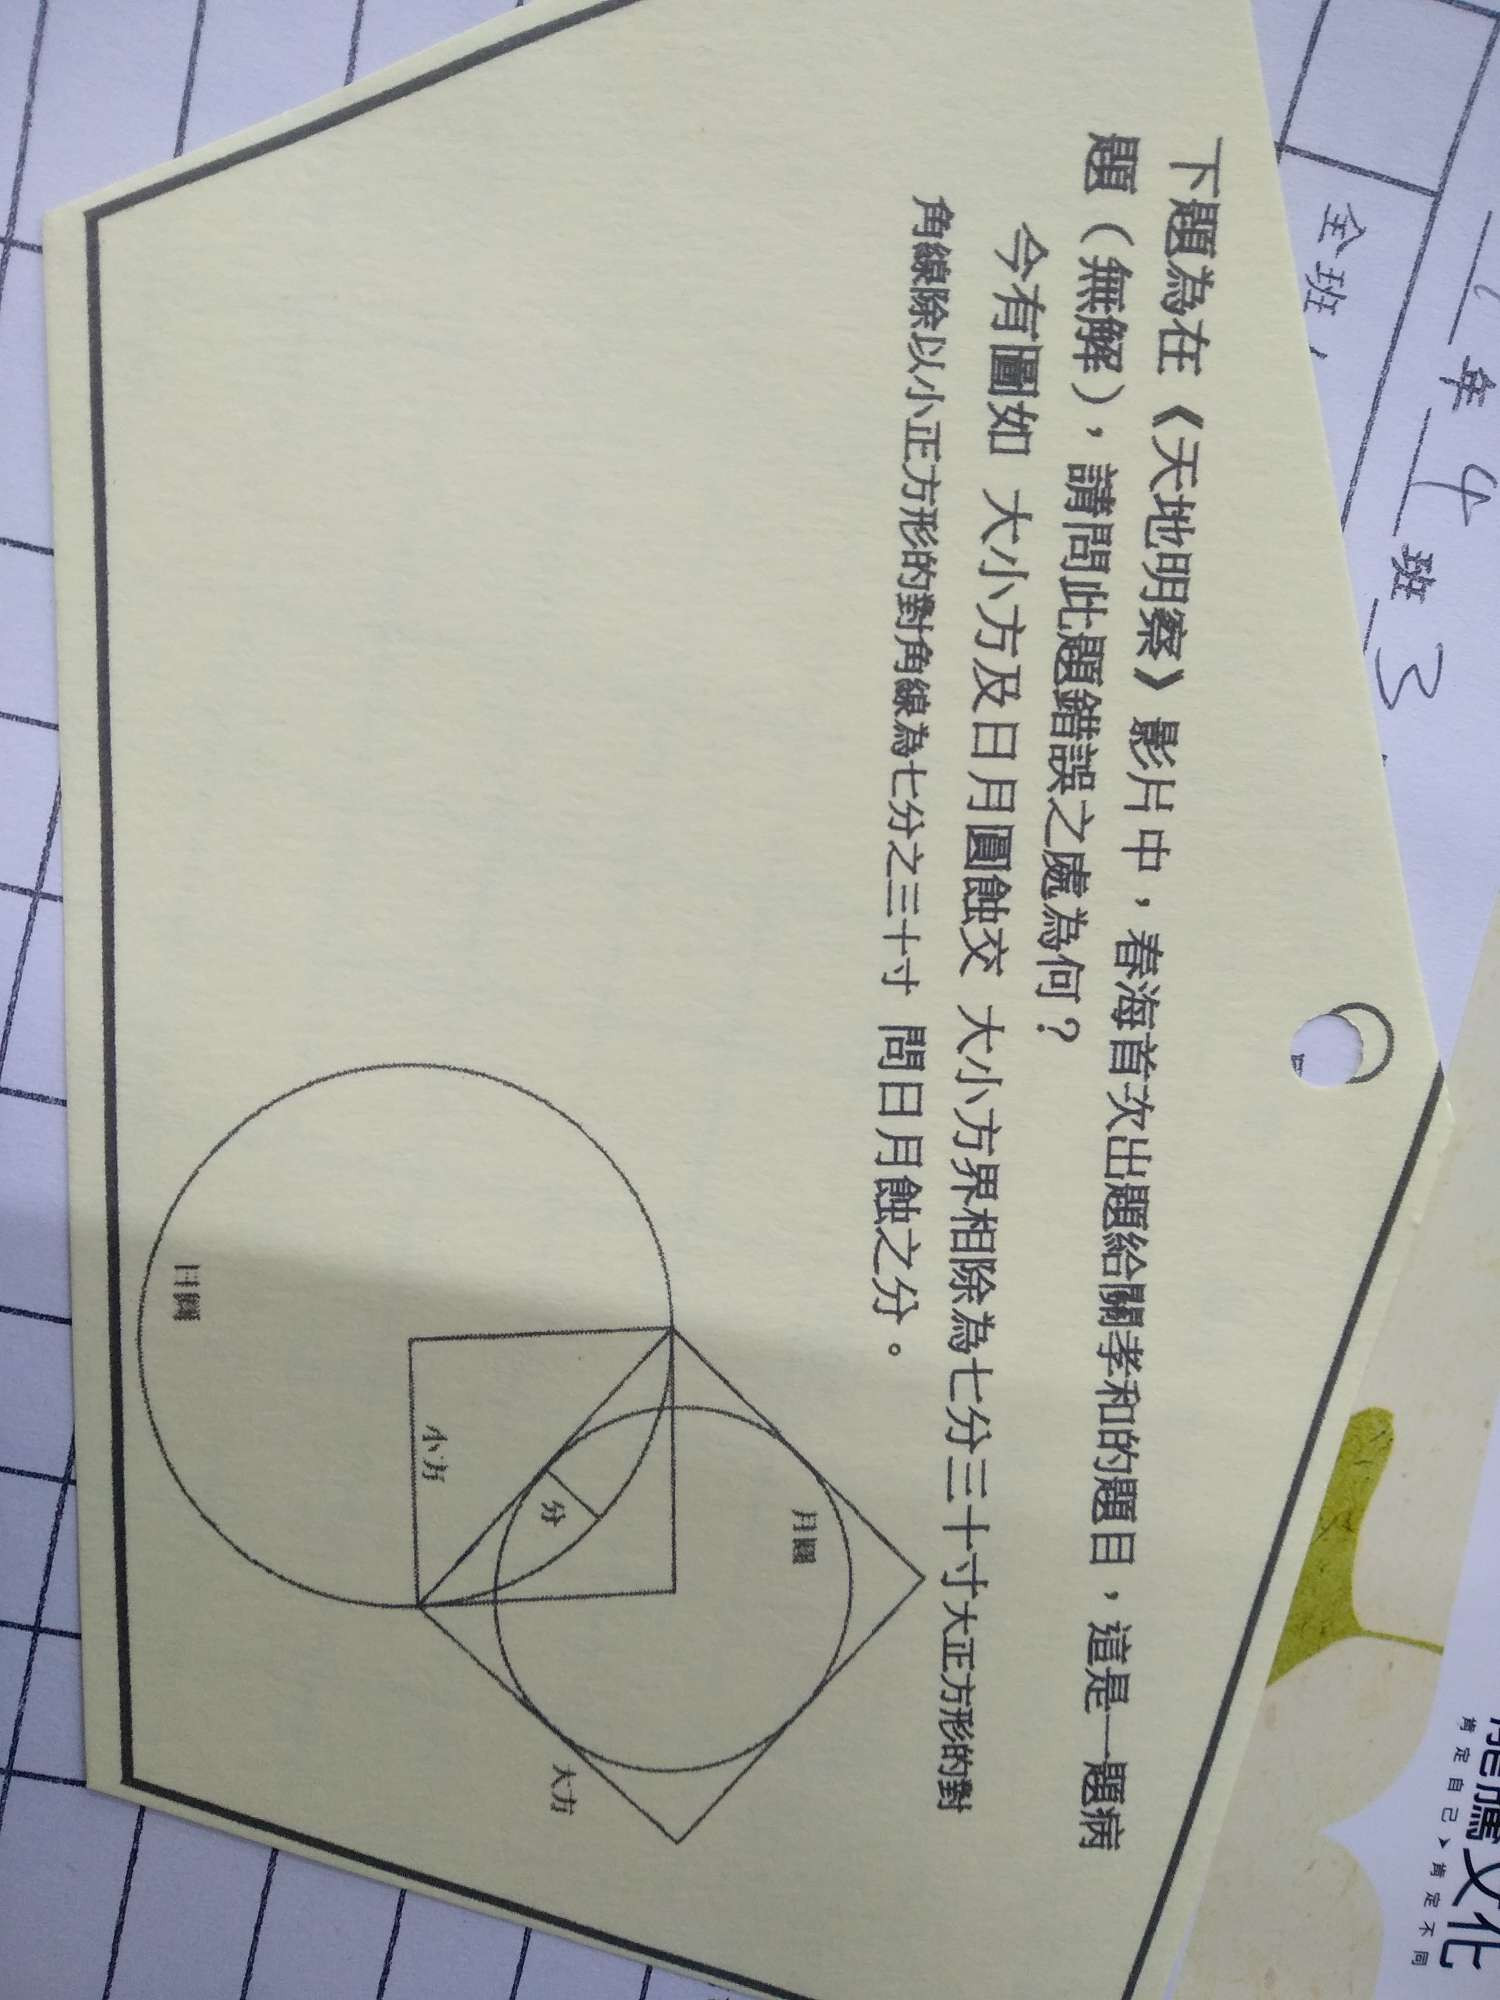 下題為在《天地明察》影片中，春海首次出題給關孝和的題目，這是一題病
題（無解），請問此題錯誤之處為何？
今有圖如 大小方及日月圓蝕交 大小方界相除為七分三十寸大正方形的對
角線除以小正方形的對角線為七分之三十寸 問日月蝕之分。
日圓
小方
分
月圓
大方
年 4 班 3
全班
龍騰文化
肯定自己 肯定不同